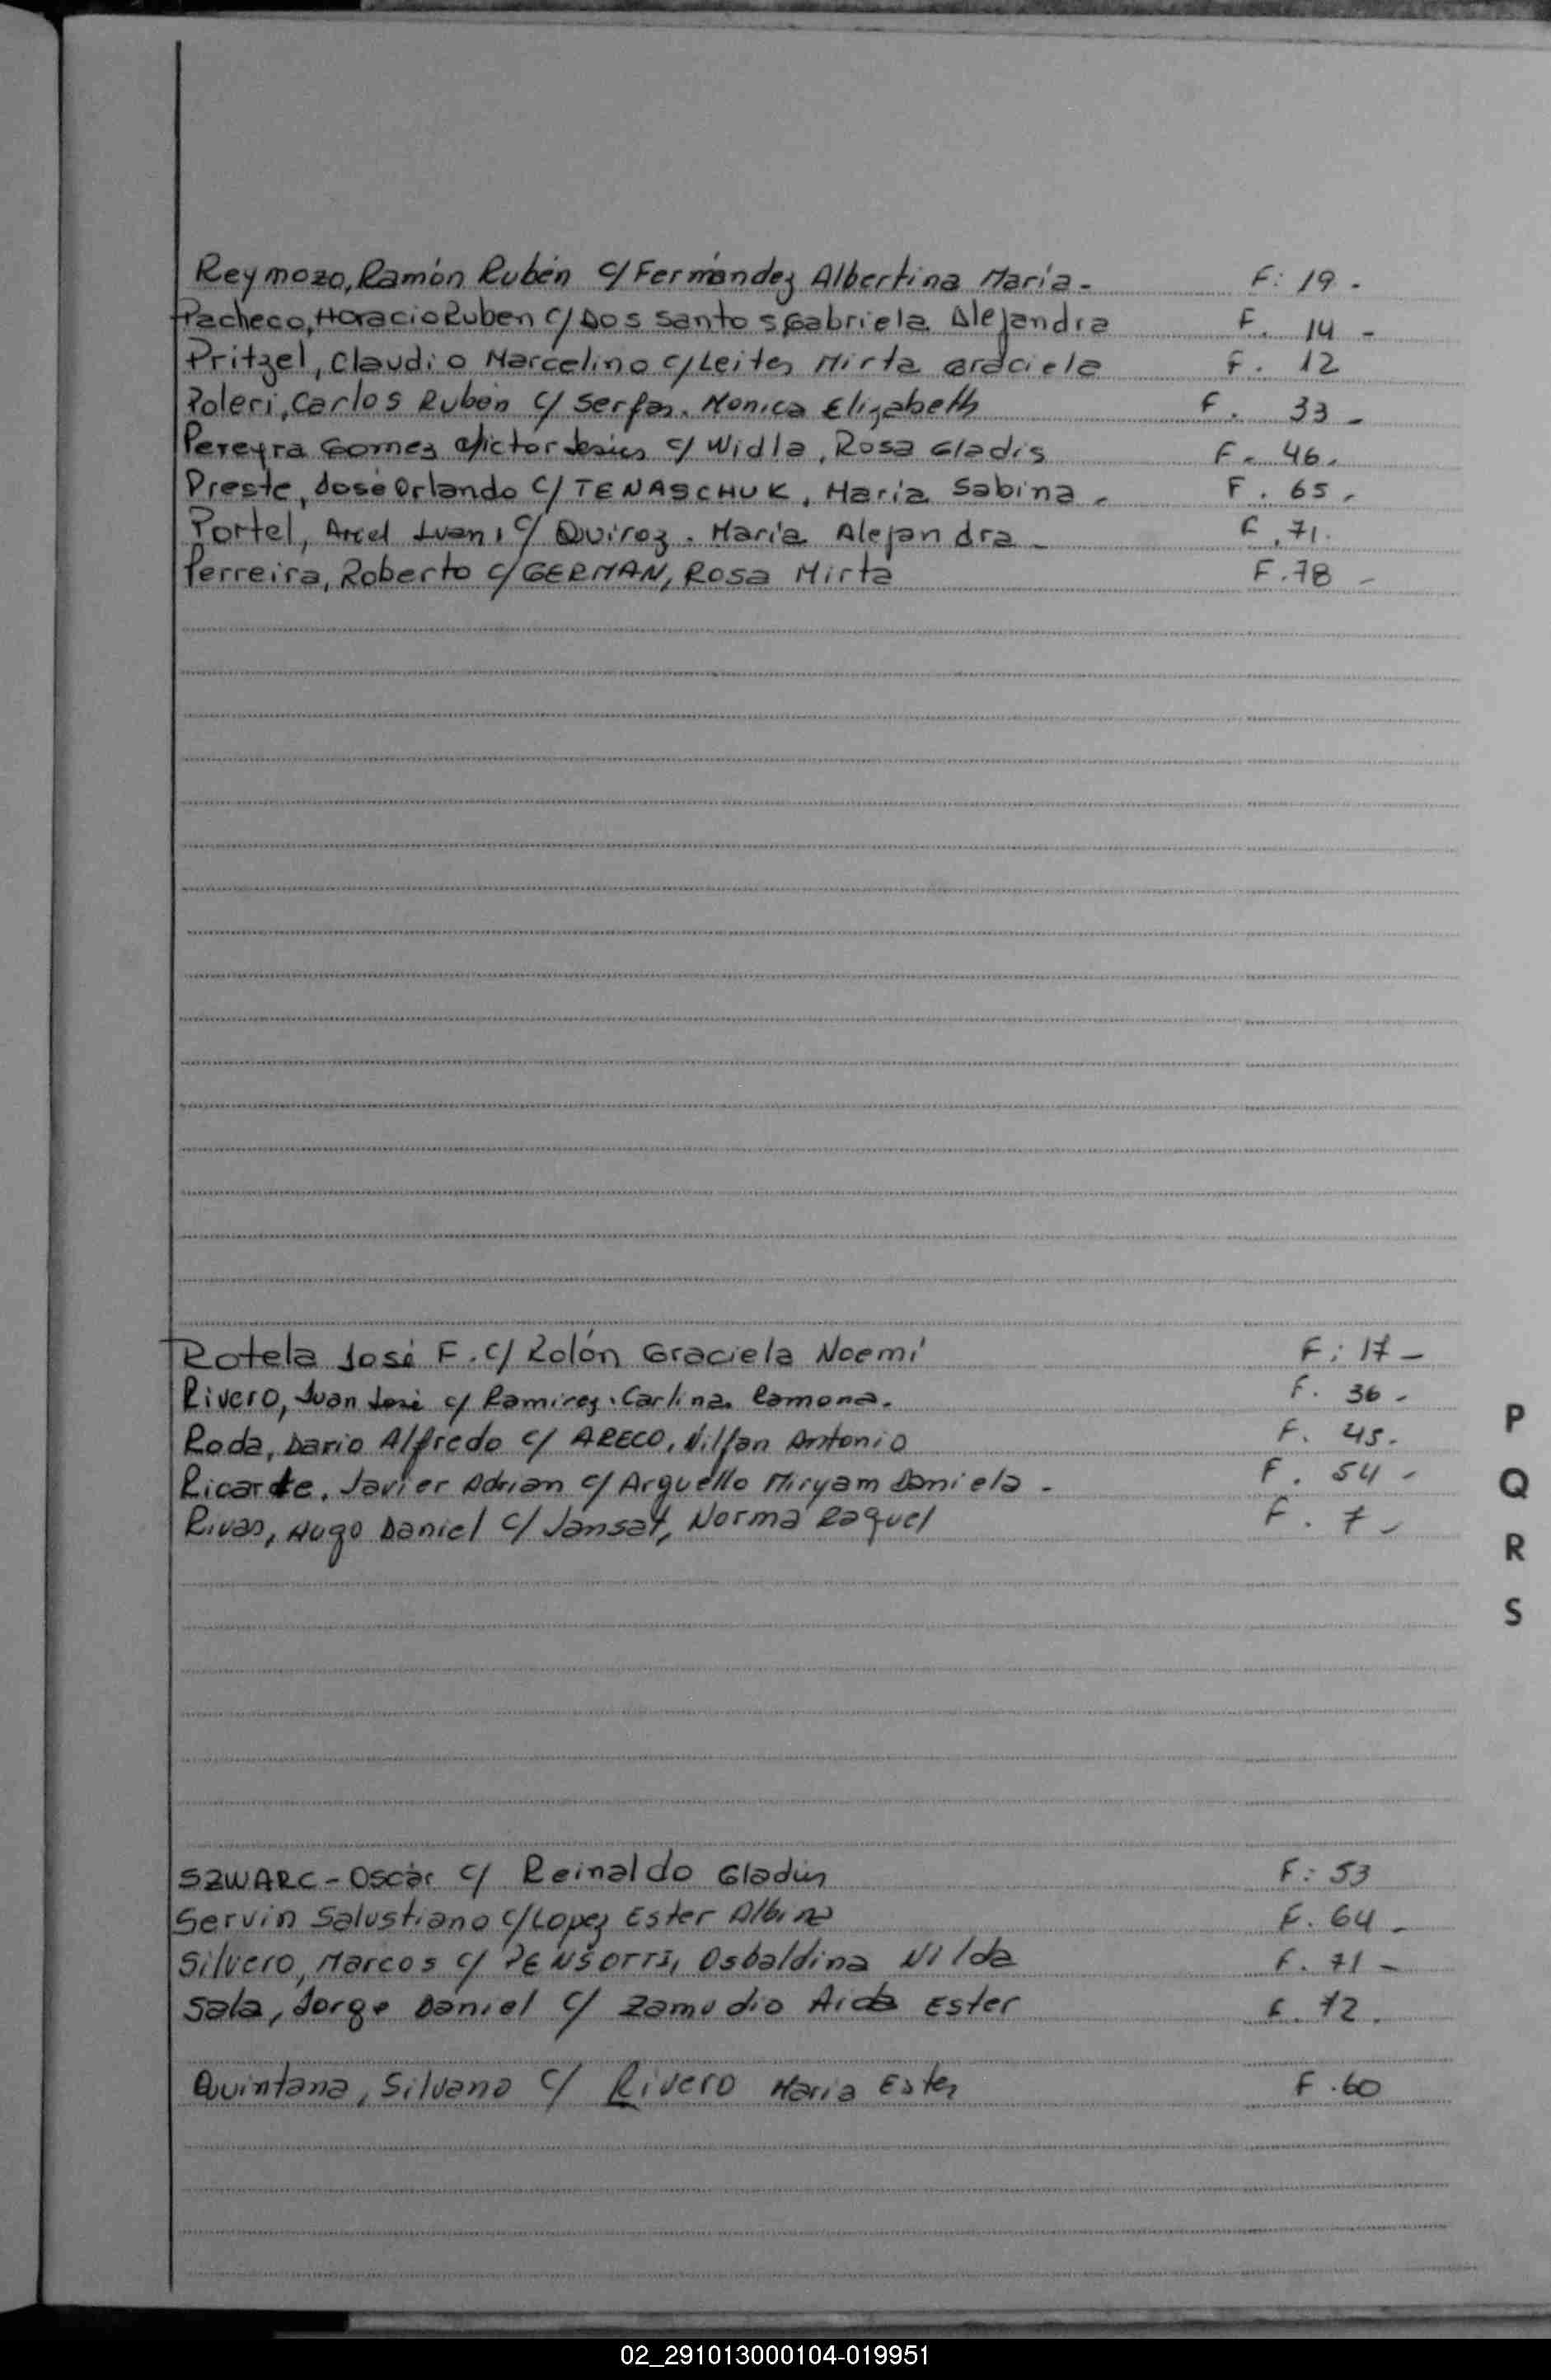 Reymozo, Ramón Rubén c/ Fernández Albertina María - F: 19 -
Pacheco, Horacio Ruben c/ Dos Santos Gabriela Alejandra F. 14 -
Pritzel, Claudio Marcelino c/ Leites Mirta Graciela F. 12
Poleri, Carlos Rubén c/ Serfas. Monica Elizabeth F. 33 -
Pereyra Gomez Victor Jesús c/ Widla, Rosa Gladis F. 46.
Preste, José Orlando c/ TENASCHUK, María Sabina - F. 65 -
Portel, Ariel Ivan, c/ Quiroz. María Alejandra - F. 71.
Perreira, Roberto c/ GERMAN, Rosa Mirta F. 78 -
Rotela José F. c/ Rolón Graciela Noemí F: 17 -
Rivero, Juan José c/ Ramirez. Carlina Ramona. F. 36 -
Roda, Dario Alfredo c/ ARECO, Antonio F. 45.
Ricarte, Javier Adrian c/ Arguello Miryam Daniela - F. 54 -
Rivas, Hugo Daniel c/ Jansat, Norma Raquel F. 7 -
P
Q
R
S
SZWARC - Oscar c/ Reinaldo Gladis F: 53
Servin Salustiano c/ Lopez Ester Albina F. 64 -
Silvero, Marcos c/ Osbaldina Nilda F. 71 -
Sala, Jorge Daniel c/ Zamudio Aida Ester F. 72.
Quintana, Silvano c/ Rivero Maria Ester F. 60
02_291013000104-019951